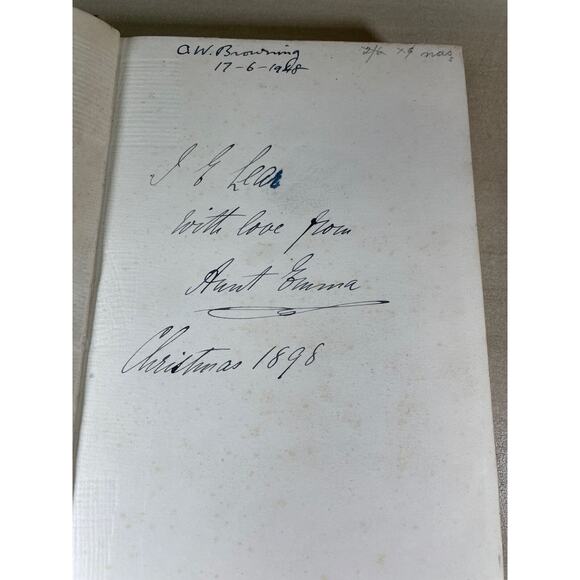 A.W. Browning
17-6-1948
2/6
I E Lear
With love from
Aunt Emma
Christmas 1898